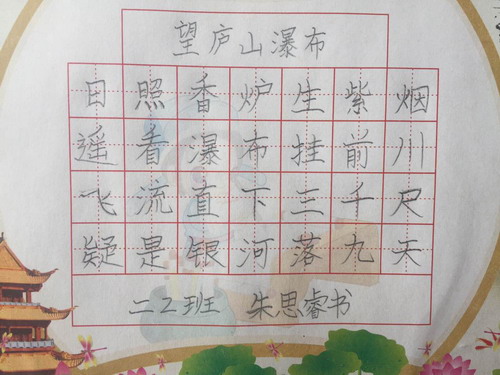 望庐山瀑布
日照香炉生紫烟
遥看瀑布挂前川
飞流直下三千尺
疑是银河落九天
二2班 朱思睿书